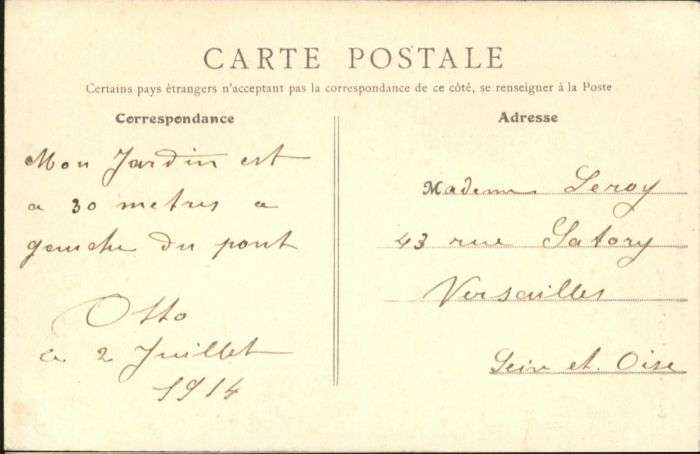 CARTE POSTALE
Certains pays étrangers n'acceptant pas la correspondance de ce côté, se renseigner à la Poste
Correspondance
Mon Jardin est
a 30 metres a
gauche du pont
Otto
a 2 Juillet
1914
Adresse
Madame Leroy
43 rue Satory
Versailles
Seine et. Oise